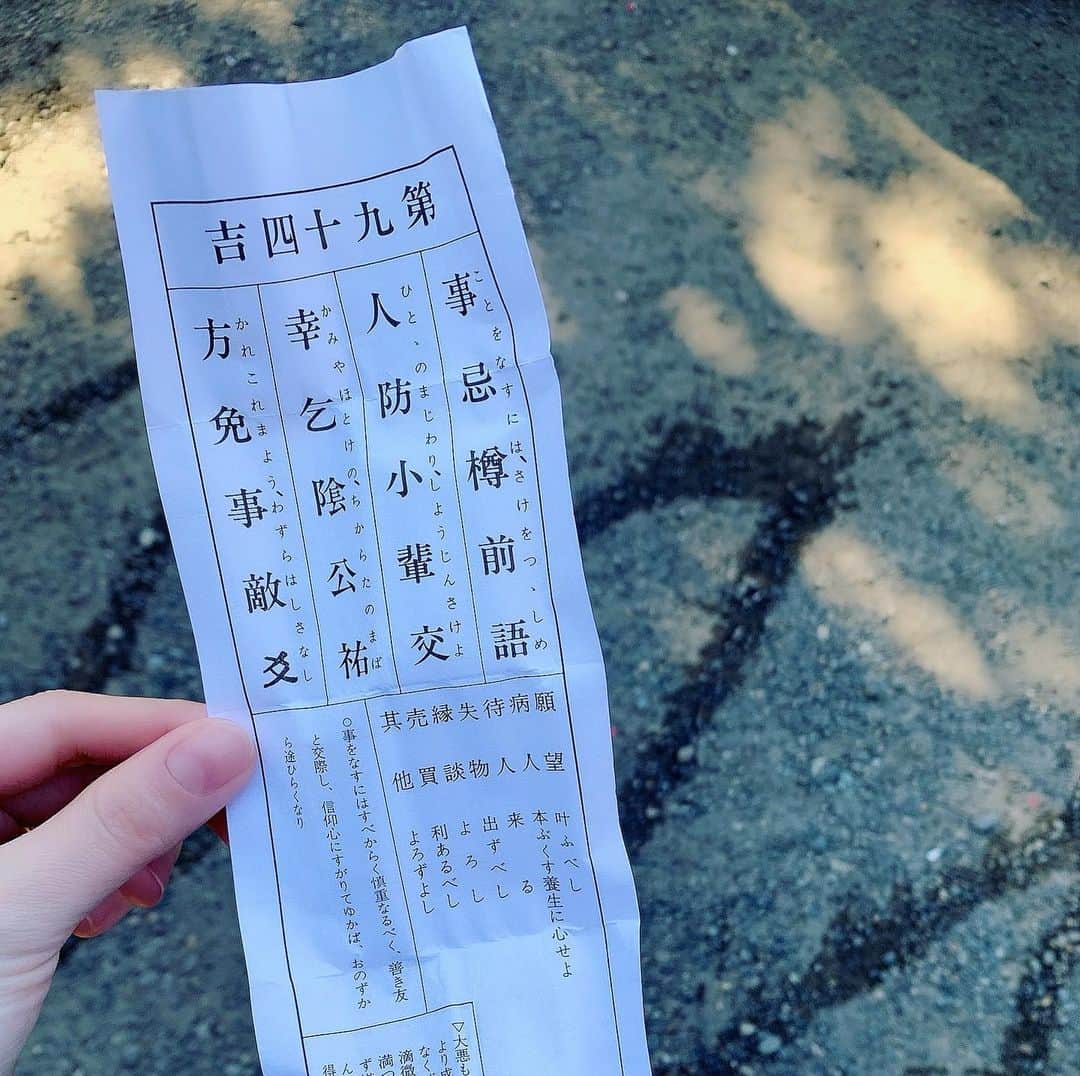 第九十四吉
事忌樽前語
ことをなすには、さけをつゝしめ
人防小輩交
ひとゝのまじわり、しようじんさけよ
幸乞陰公祐
かみやほとけの、ちからたのまば
方免事敵爻
かれこれまよう、わずらはしさなし
願望 叶ふべし
病人 本ぷくす養生に心せよ
待人 来る
失物 出ずべし
縁談 よろし
売買 利あるべし
其他 よろずよし
○事をなすにはすべからく慎重なるべく、善き友
と交際し、信仰心にすがりてゆかば、おのずか
ら途ひらくなり
▽大悪も
より
なく
滴微
満つ
ず
ん
得